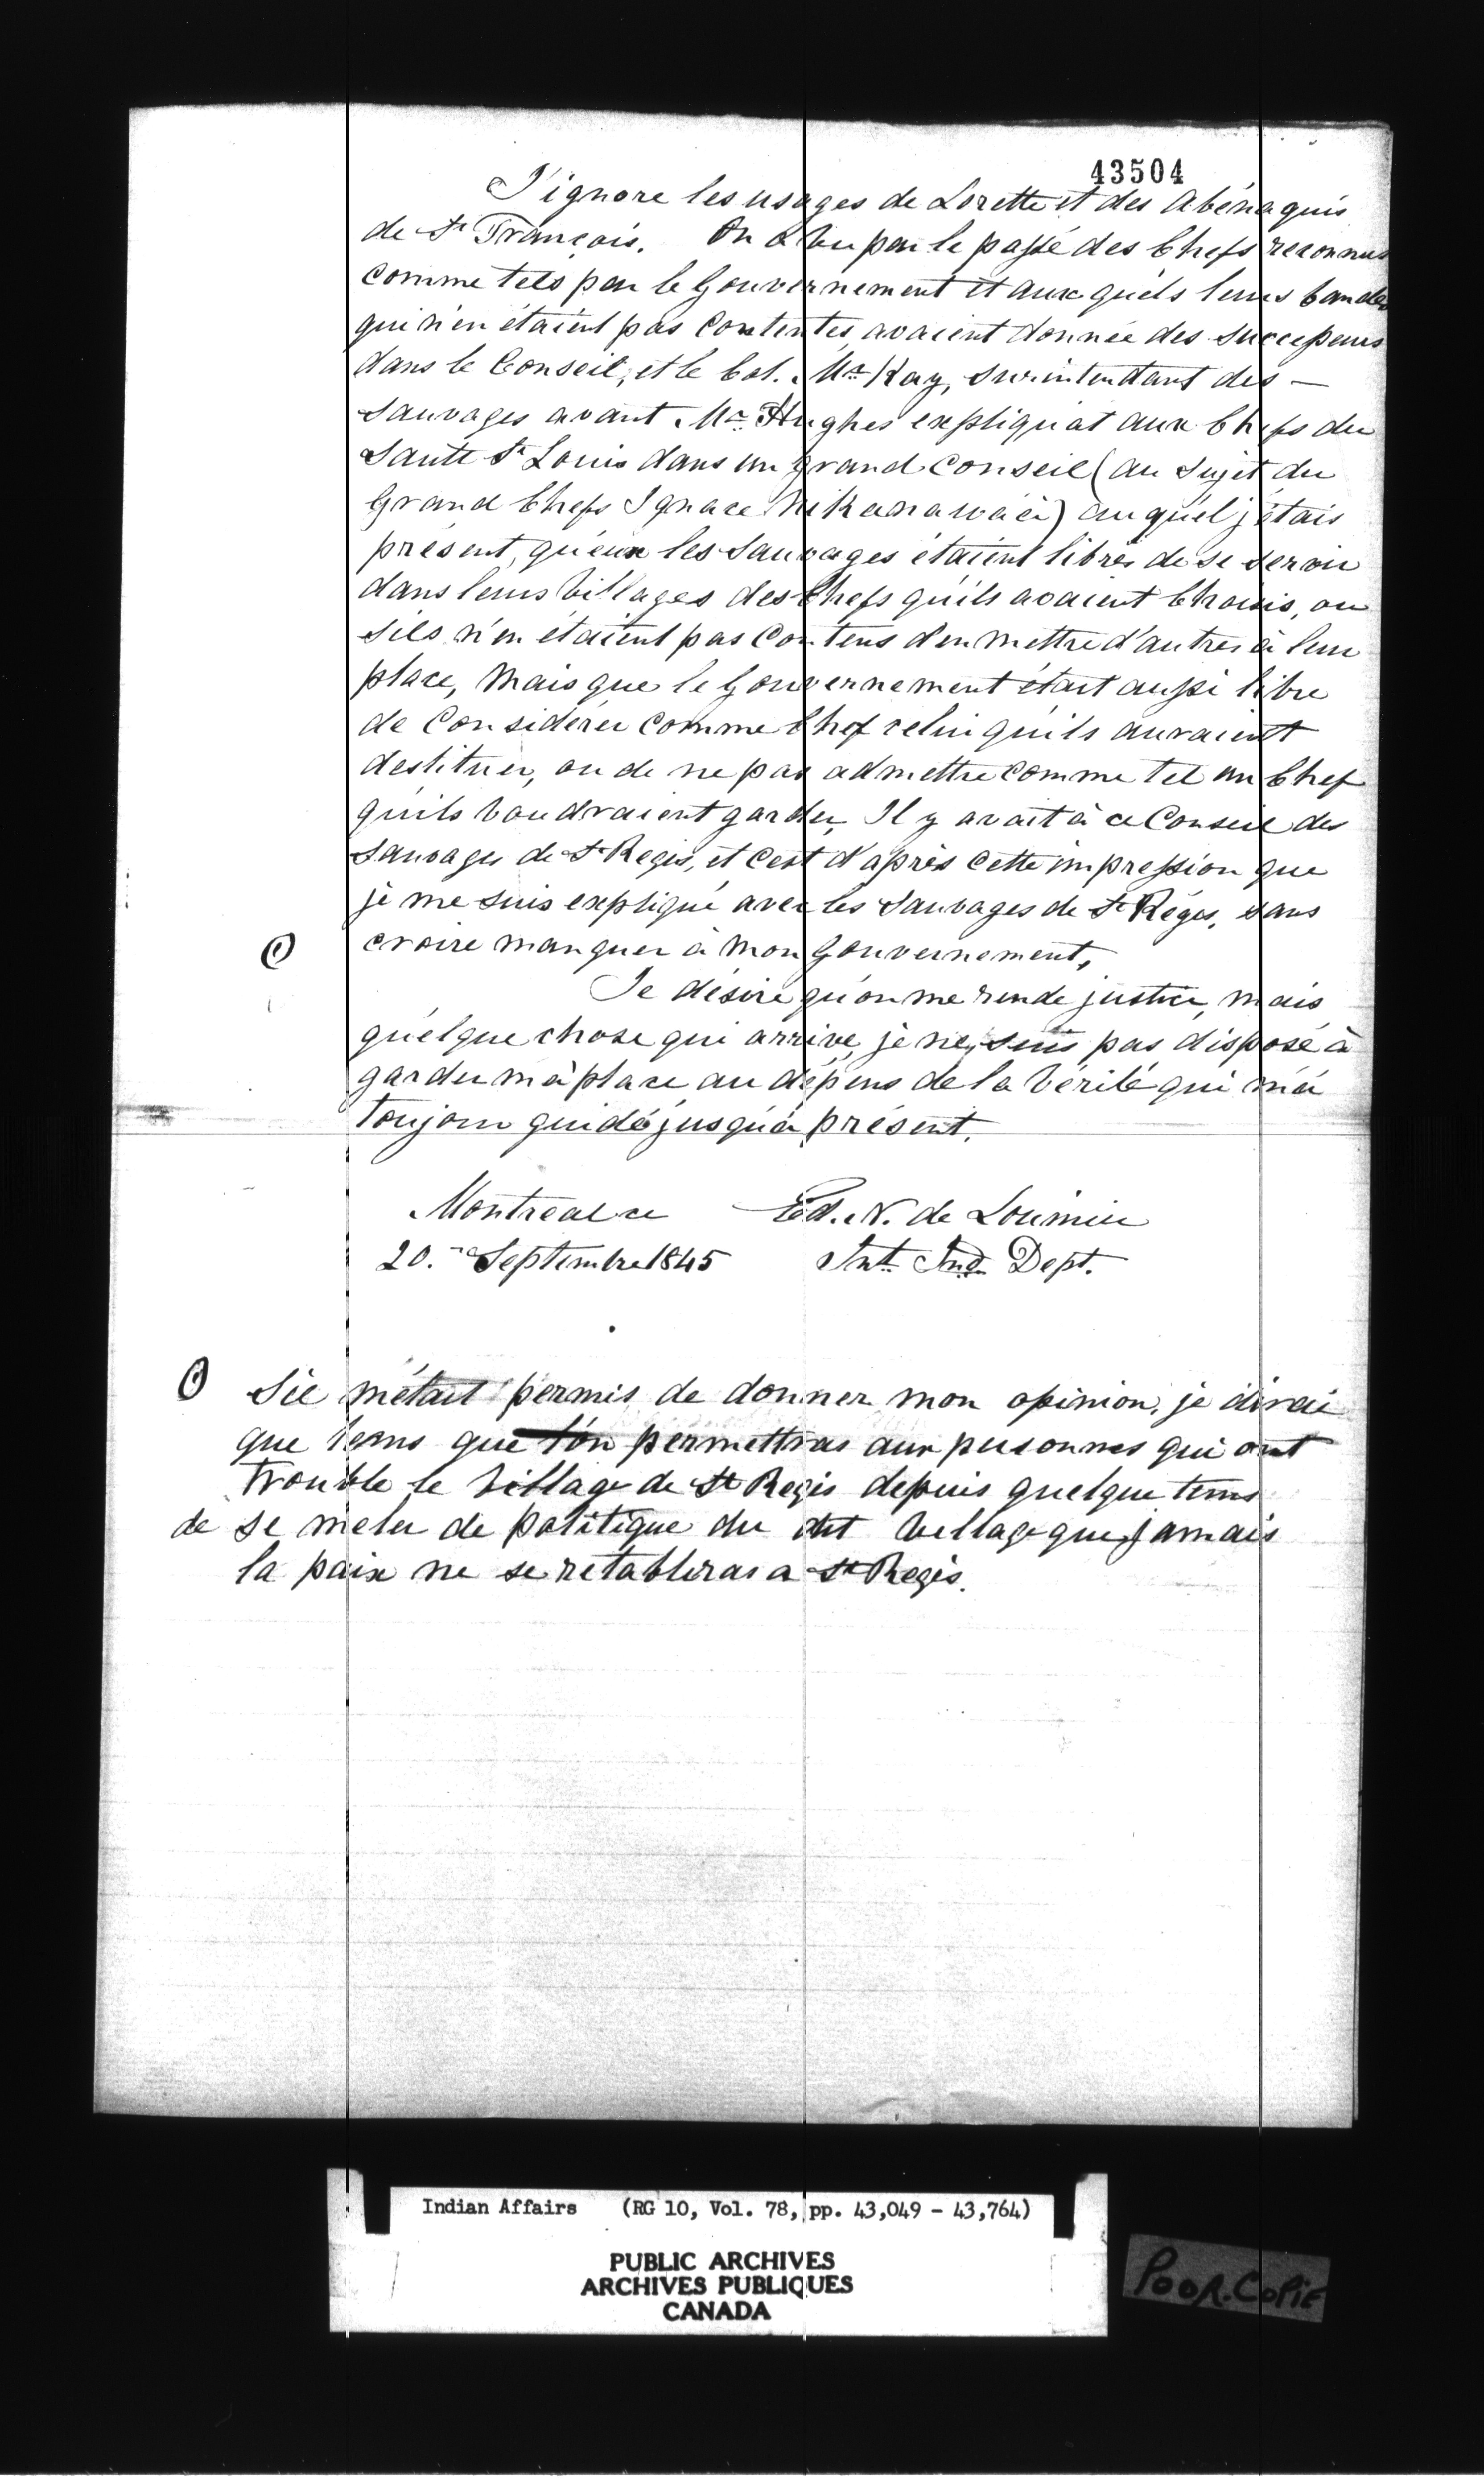 43504
J'ignore les usages de Lorette et des Abénaquis
de St François. On a vu par le passé des Chefs reconnus
comme tels par le Gouvernement et aux quéls leurs bandes
qui n'en étaient pas contentes, avaient donnée des successeurs
dans le Conseil, et le Col. McKay, surintendant des —
Sauvages avant Mr. Hughes expliquat aux Chefs du
Sault St Louis dans un grand Conseil (au sujet du
Grand Chefs Ignace ) au quél j'étais
présent, qu'eux les Sauvages étaient libres de se servir
dans leurs Villages des Chefs qu'ils avaient Choisis, ou
s'ils n'en étaient pas contens d'en mettre d'autres à leur
place, Mais que le Gouvernement était aussi libre
de Considérer comme Chef celui qu'ils auraient
destituer, ou de ne pas admettre comme tel un Chef
qu'ils voudraient garder, Il y avait à ce Conseil des
Sauvages de St Regis, et c'est d'après cette impression que
je me suis expliqué avec les Sauvages de St Régis, sans
croire manquer à mon Gouvernement,
Je désire qu'on me rende justice, mais
quélque chose qui arrive, je ne suis pas disposé à
garder ma place au dépens de la Vérité qui m'a
toujour guidé jusqu'à présent.
Montreal ce Ed. N. de Lorimier
20. Septembre 1845 Int. Ind. Dept.
Sil m'était permis de donner mon opinion, je dirai
que tems que l'on permettras aux personnes qui ont
trouble le village de St Regis depuis quelque tems
de se meler de politique du dit village que jamais
la paix ne se retabliras a St Regis.
Indian Affairs (RG 10, Vol. 78, pp. 43,049 - 43,764)
PUBLIC ARCHIVES
ARCHIVES PUBLIQUES
CANADA
POOR. COPIE